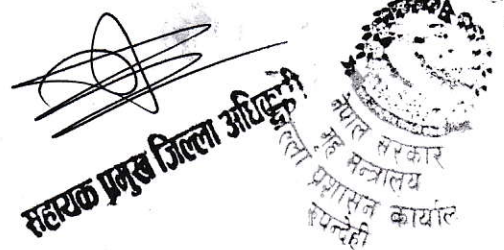 सहायक प्रमुख जिल्ला अधिकारी
नेपाल सरकार
गृह मन्त्रालय
जिल्ला प्रशासन कार्यालय
रुपन्देही